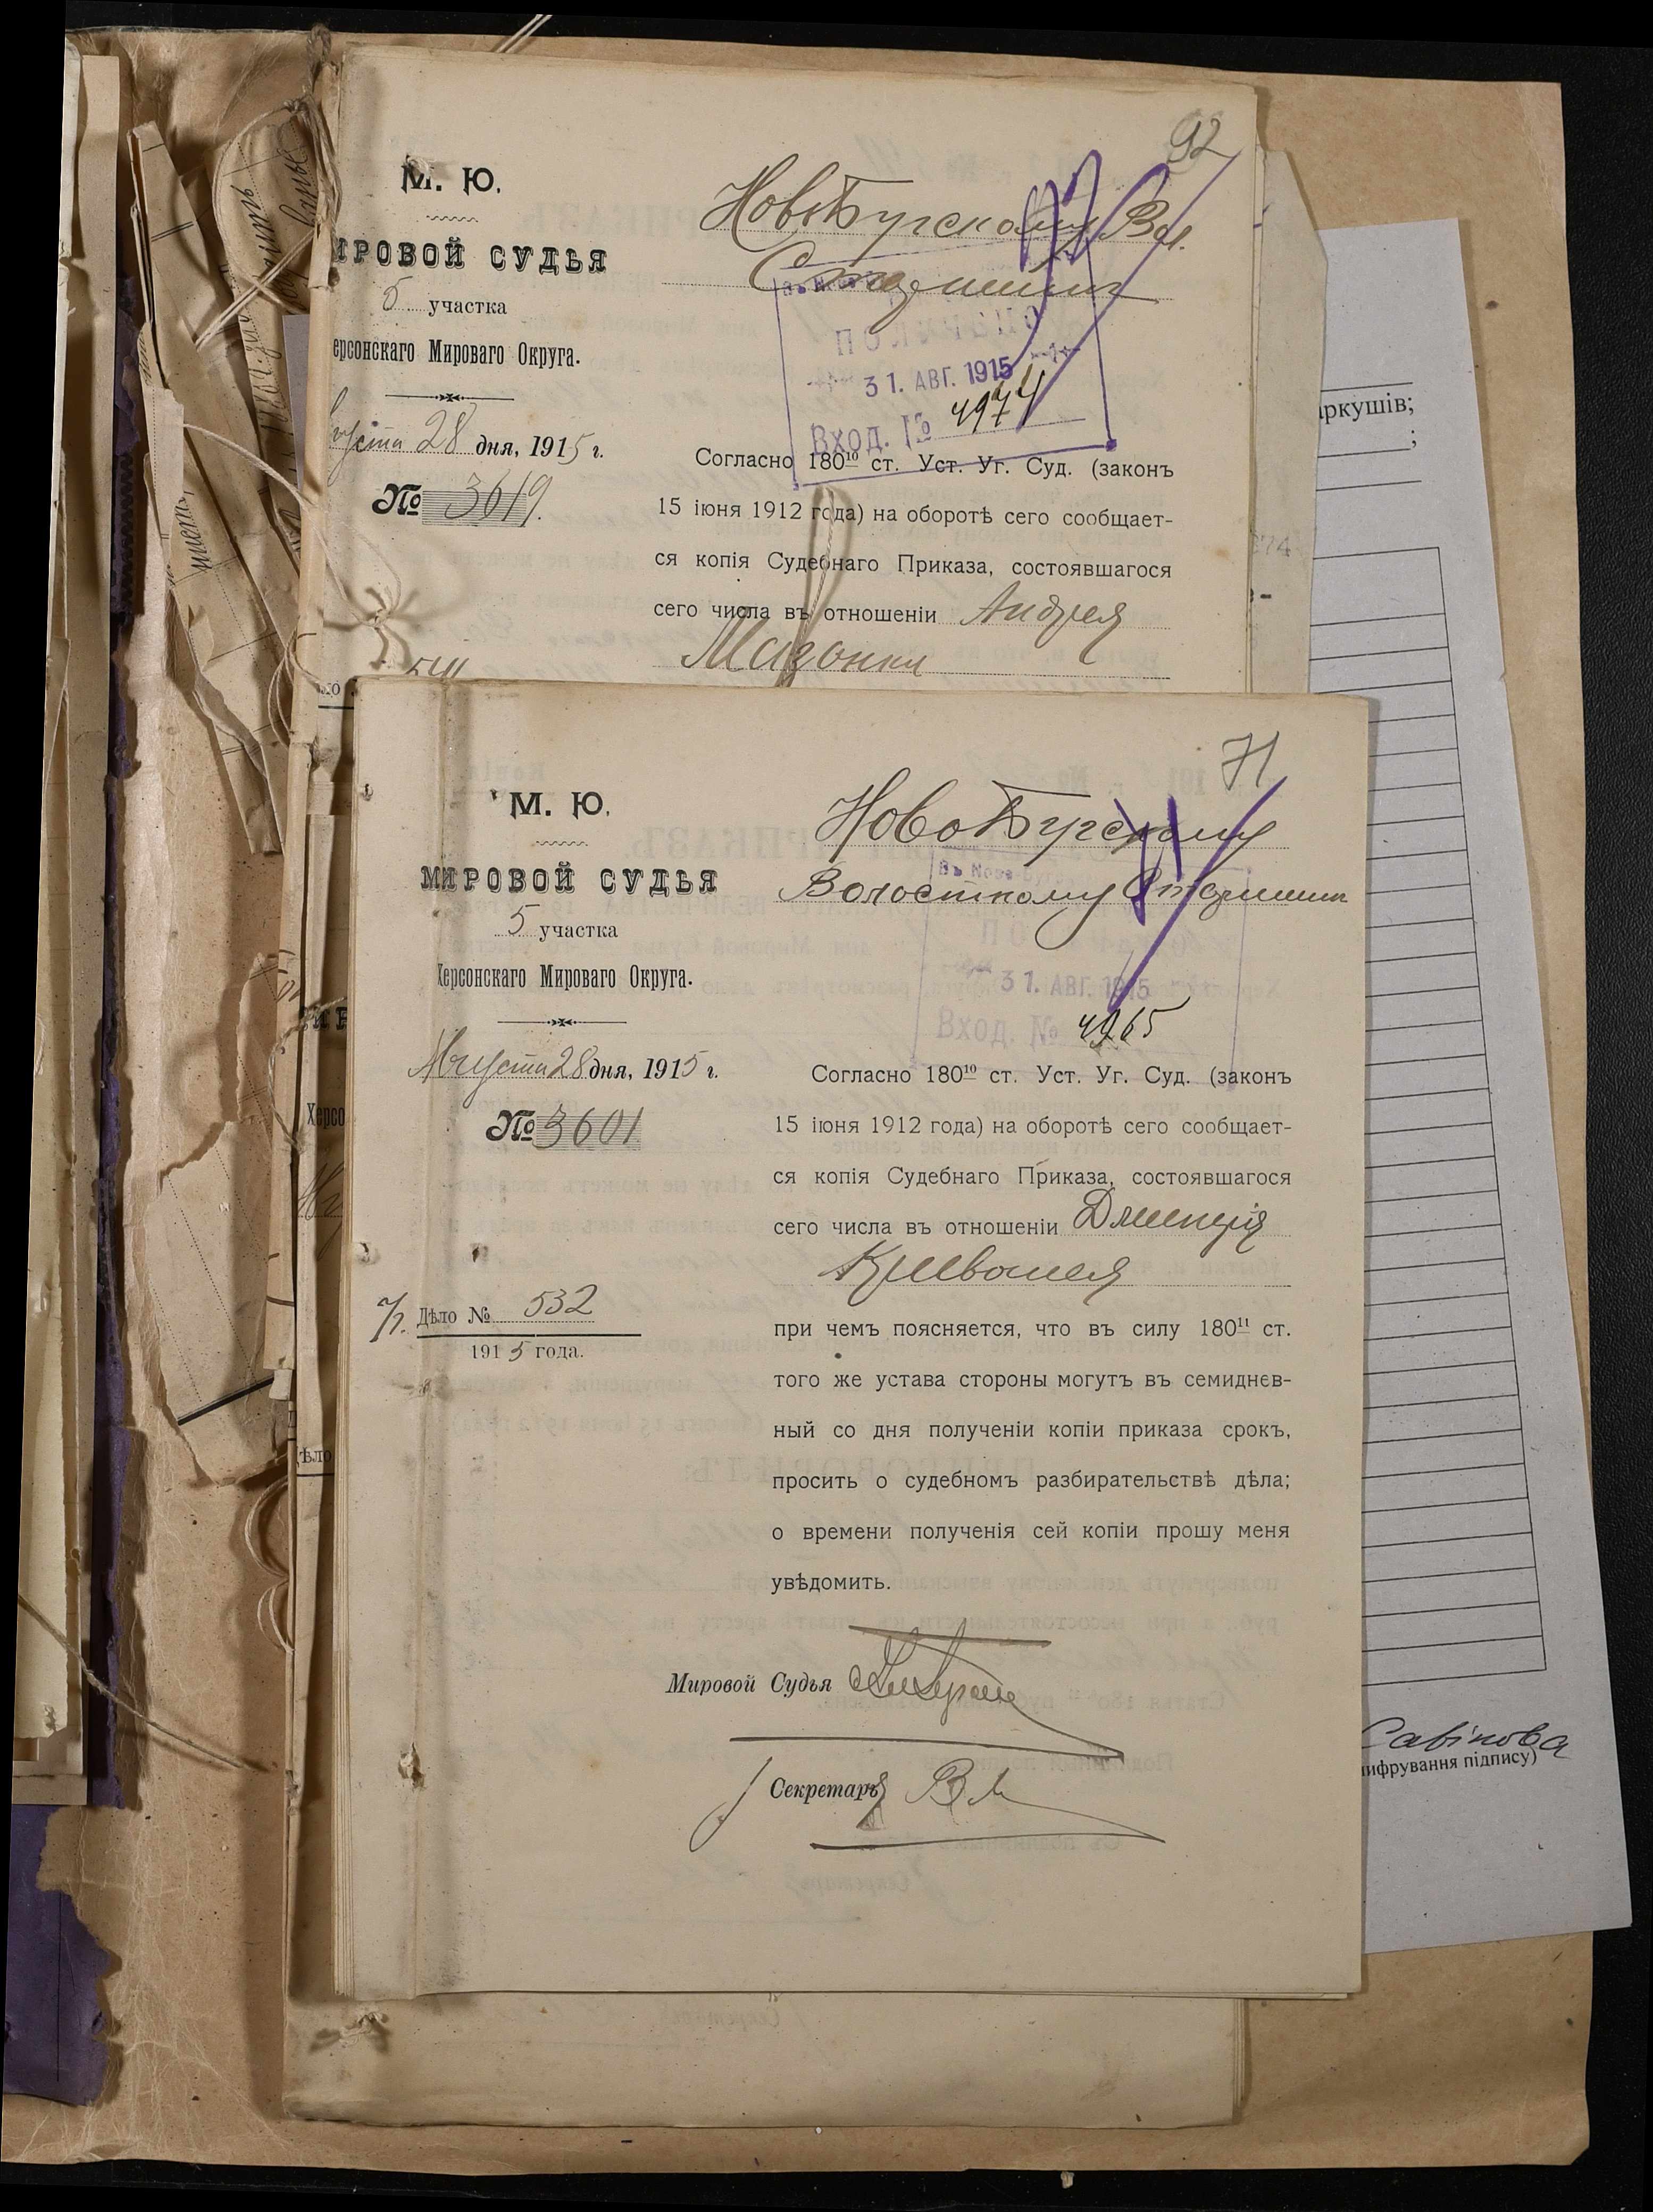 92
М. Ю.
НовоБугскому Вол.
Старшинѣ
ИРОВОЙ СУДЬЯ
5 участка
ерсонскаго Мирового Округа.
ПОЛУЧЕНО
31. АВГ. 1915
Вход. № 4974
густа 28 дня, 1915 г.
№ 3619.
Согласно 180¹⁰ ст. Уст. Уг. Суд. (законъ
15 іюня 1912 года) на оборотѣ сего сообщает-
ся копія Судебнаго Приказа, состоявшагося
сего числа въ отношеніи Андрея
Мазонки
541
71
М. Ю.
НовоБугскому
Волостному Старшинѣ
МИРОВОЙ СУДЬЯ
5 участка
Херсонскаго Мироваго Округа.
Въ Ново-Буг
ПО
31. АВГ. 1915
Вход. № 4965
Августа 28 дня, 1915 г.
№ 3601
Согласно 180¹⁰ ст. Уст. Уг. Суд. (законъ
15 іюня 1912 года) на оборотѣ сего сообщает-
ся копія Судебнаго Приказа, состоявшагося
сего числа въ отношеніи Дмитрія
Кривошея
Дѣло № 532
1915 года.
при чемъ поясняется, что въ силу 180¹¹ ст.
того же устава стороны могутъ въ семиднев-
ный со дня полученіи копіи приказа срокъ,
просить о судебномъ разбирательствѣ дѣла;
о времени полученія сей копіи прошу меня
увѣдомить.
Мировой Судья
Секретарь
аркушів;
;
Херсо
ѣло
Савінова
ифрування підпису)